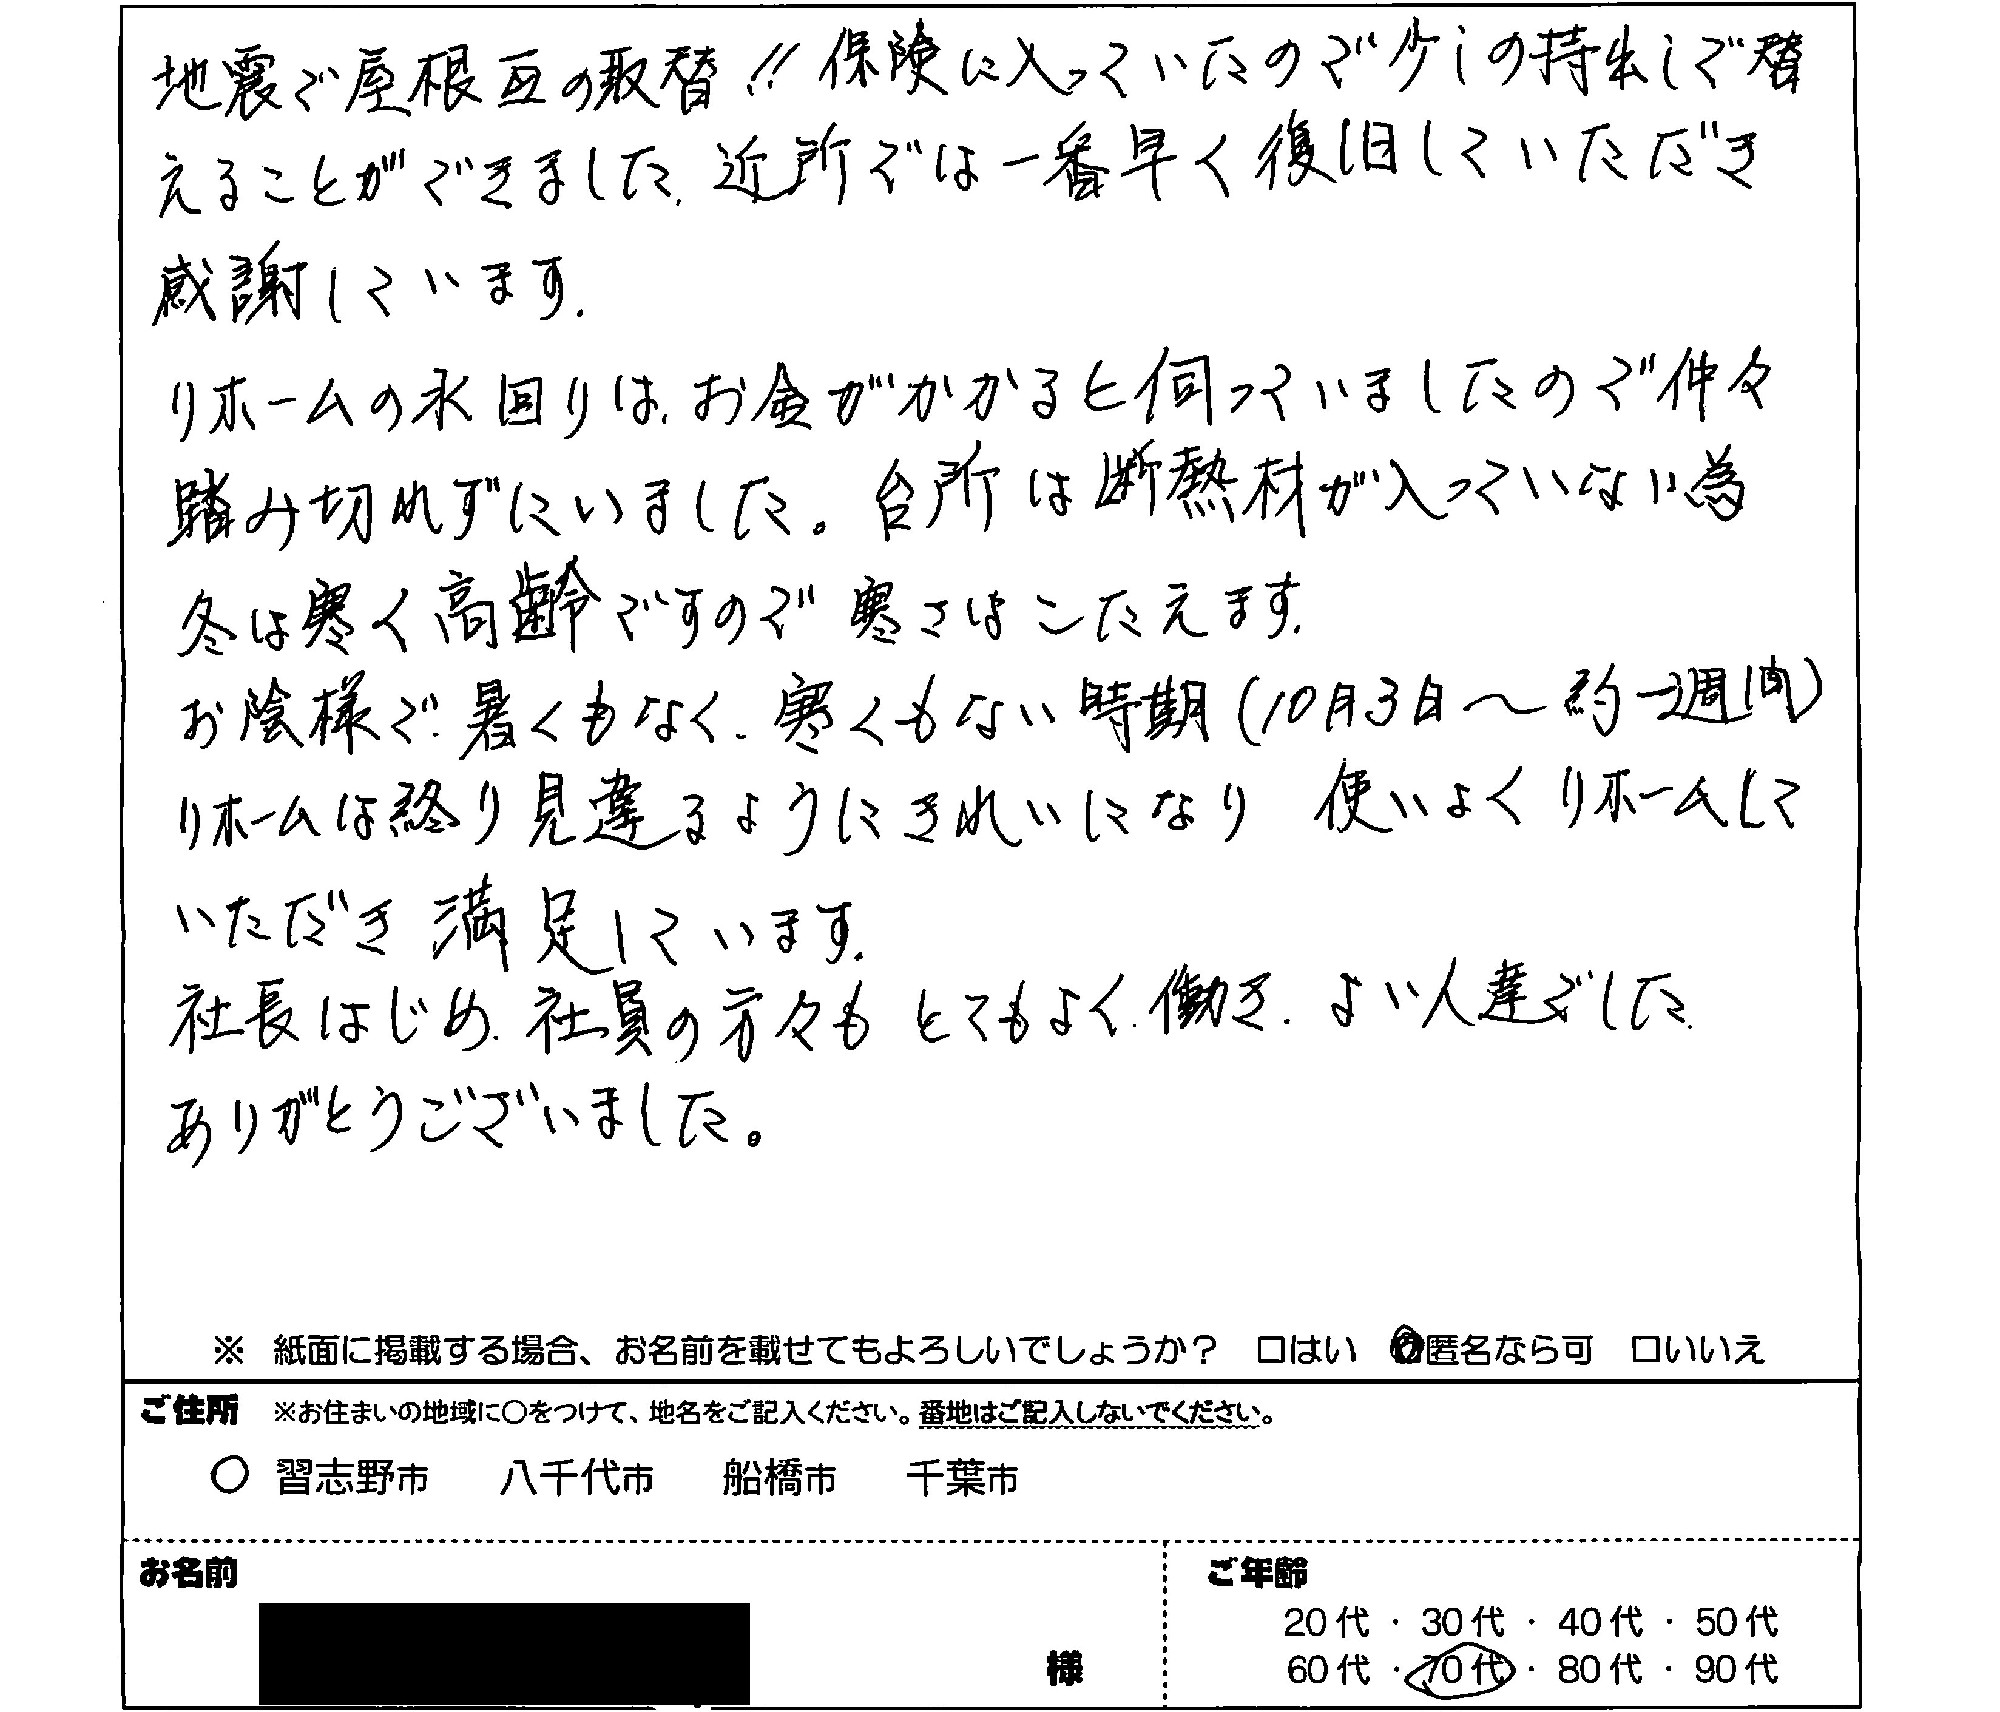 地震で屋根瓦の取替!!保険に入っていたので少しの持出しで替
えることができました.近所では一番早く復旧していただき
感謝しています.
リホームの水回りは、お金がかかると伺っていましたので仲々
踏み切れずにいました。台所は断熱材が入っていない為
冬は寒く高齢ですので寒さはこたえます.
お陰様で、暑くもなく、寒くもない時期(10月3日〜約一週間)
リホームは終り見違るようにきれいになり 使いよくリホームして
いただき満足しています.
社長はじめ、社員の方々も とてもよく、働き、よい人達でした.
ありがとうございました。
※ 紙面に掲載する場合、お名前を載せてもよろしいでしょうか? □はい ☑匿名なら可 □いいえ
ご住所 ※お住まいの地域に○をつけて、地名をご記入ください。番地はご記入しないでください。
○ 習志野市 八千代市 船橋市 千葉市
お名前 様
ご年齢
20代・30代・40代・50代
60代・70代・80代・90代